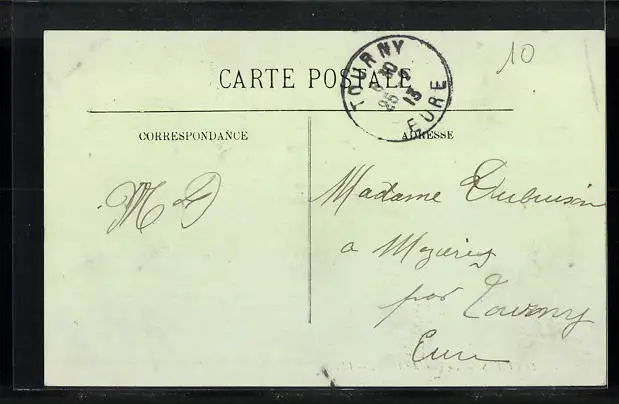 10
CARTE POSTALE
TOURNY
EURE
25
13
CORRESPONDANCE
ADRESSE
M D
Madame Dubuisson
a Mezieres
par Tourny
Eure